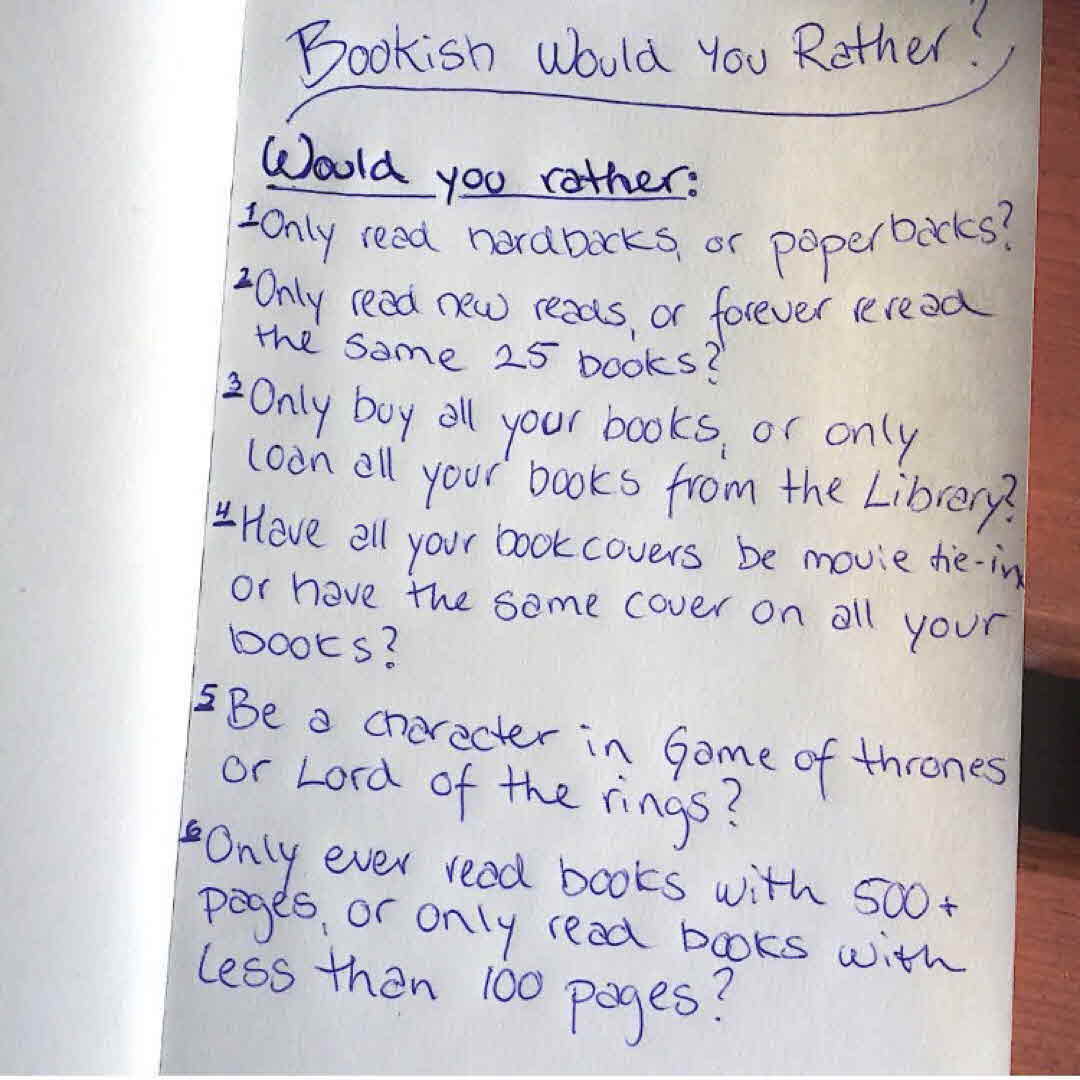 Bookish Would You Rather?
Would you rather:
1 Only read hardbacks, or paperbacks?
2 Only read new reads, or forever reread
the same 25 books?
3 Only buy all your books, or only
loan all your books from the Library?
4 Have all your bookcovers be movie tie-in
or have the same cover on all your
books?
5 Be a character in Game of thrones
or Lord of the rings?
6 Only ever read books with 500+
pages, or only read books with
less than 100 pages?